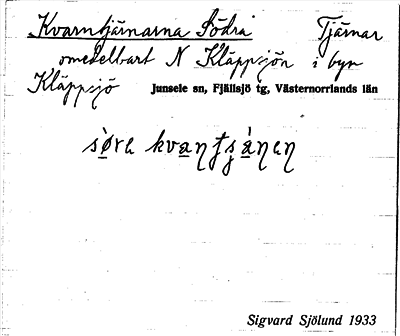 Kvarntjärnarna Södra Tjärnar
omedelbart N Kläppsjön i byn
Kläppsjö Junsele sn, Fjällsjö tg, Västernorrlands län
Sigvard Sjölund 1933